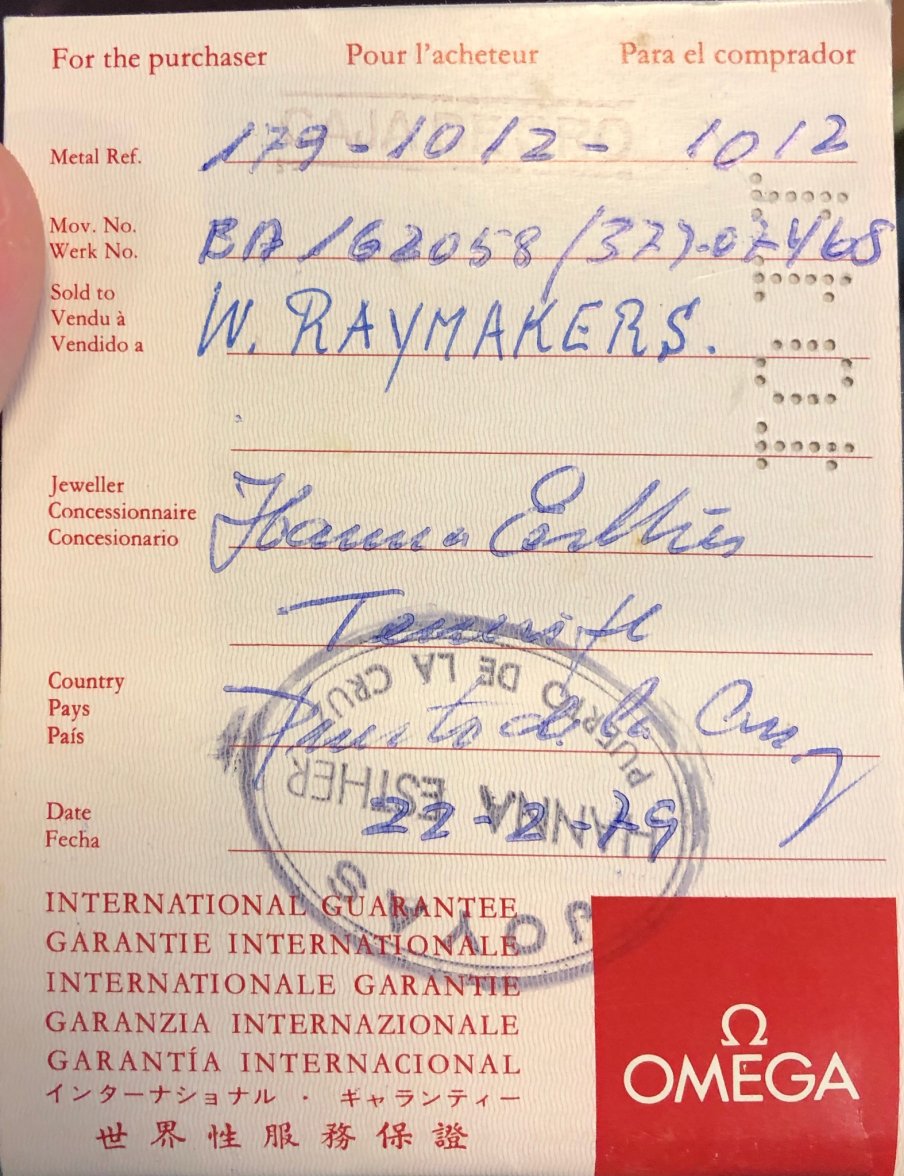 For the purchaser Pour l'acheteur Para el comprador
Metal Ref. 179-1012-1012
Mov. No.
Werk No.
BA 162058
Sold to
Vendu à
Vendido a
W. RAYMAKERS.
Jeweller
Concessionnaire
Concesionario
Tenerife
Country
Pays
País
Puerto de la Cruz
Date
Fecha
22-2-79
JOYAS
HANNA ESTHER
PUERTO DE LA CRUZ
INTERNATIONAL GUARANTEE
GARANTIE INTERNATIONALE
INTERNATIONALE GARANTIE
GARANZIA INTERNAZIONALE
GARANTÍA INTERNACIONAL
インターナショナル・ギャランティー
世界性服務保證
Ω
OMEGA